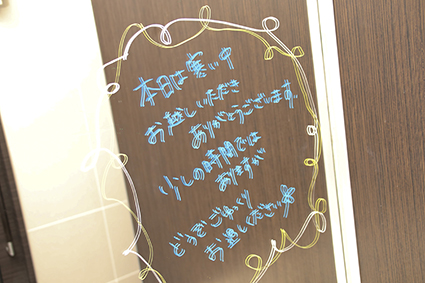 本日は寒い中
お越しいただき
ありがとうございます。
少しの時間では
ありますが
どうぞごゆっくり
お過しください